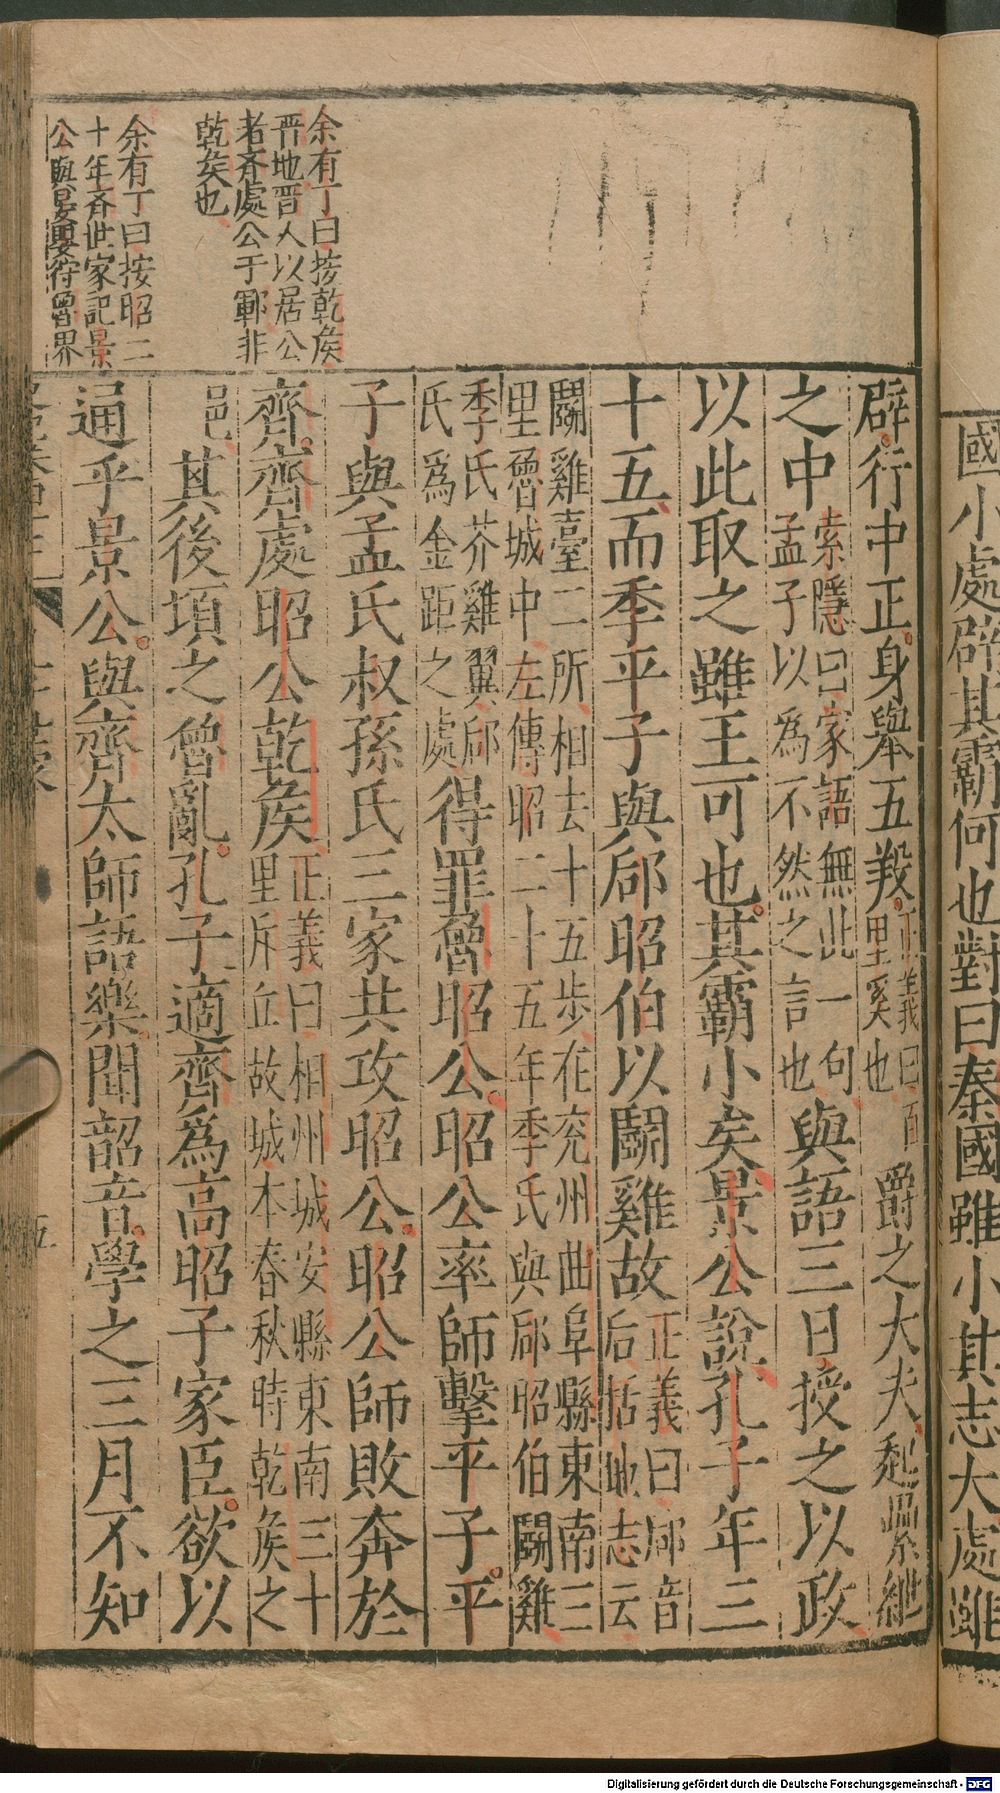 國小處辟其霸何也對曰秦國雖小其志大處雖
余有丁曰按乾矦
晋地晋人以居公
者斉處公于鄆非
乾矣也
余有丁曰按昭二
十年斉世家記景
公與晏嬰狩魯界
辟行中正身舉五羖正義曰百里奚也爵之大夫起纍紲
之中索隱曰家語無此一句孟子以為不然之言也與語三日授之以政
以此取之雖王可也其霸小矣景公說孔子年三
十五而季平子與郈昭伯以鬬雞故正義曰郈音后括地志云
鬬雞臺二所相去十五步在兖州曲阜縣東南三
里魯城中左傳昭二十五年季氏與郈昭伯鬬雞
季氏芥雞翼郈氏為金距之處得罪魯昭公昭公率師擊平子平
子與孟氏叔孫氏三家共攻昭公昭公師敗奔於
齊齊處昭公乾矦正義曰相州城安縣東南三十里斥丘故城本春秋時乾矦之
邑其後頃之魯亂孔子適齊為高昭子家臣欲以
通乎景公與齊太師語樂聞韶音學之三月不知
五
Digitalisierung gefördert durch die Deutsche Forschungsgemeinschaft - DFG